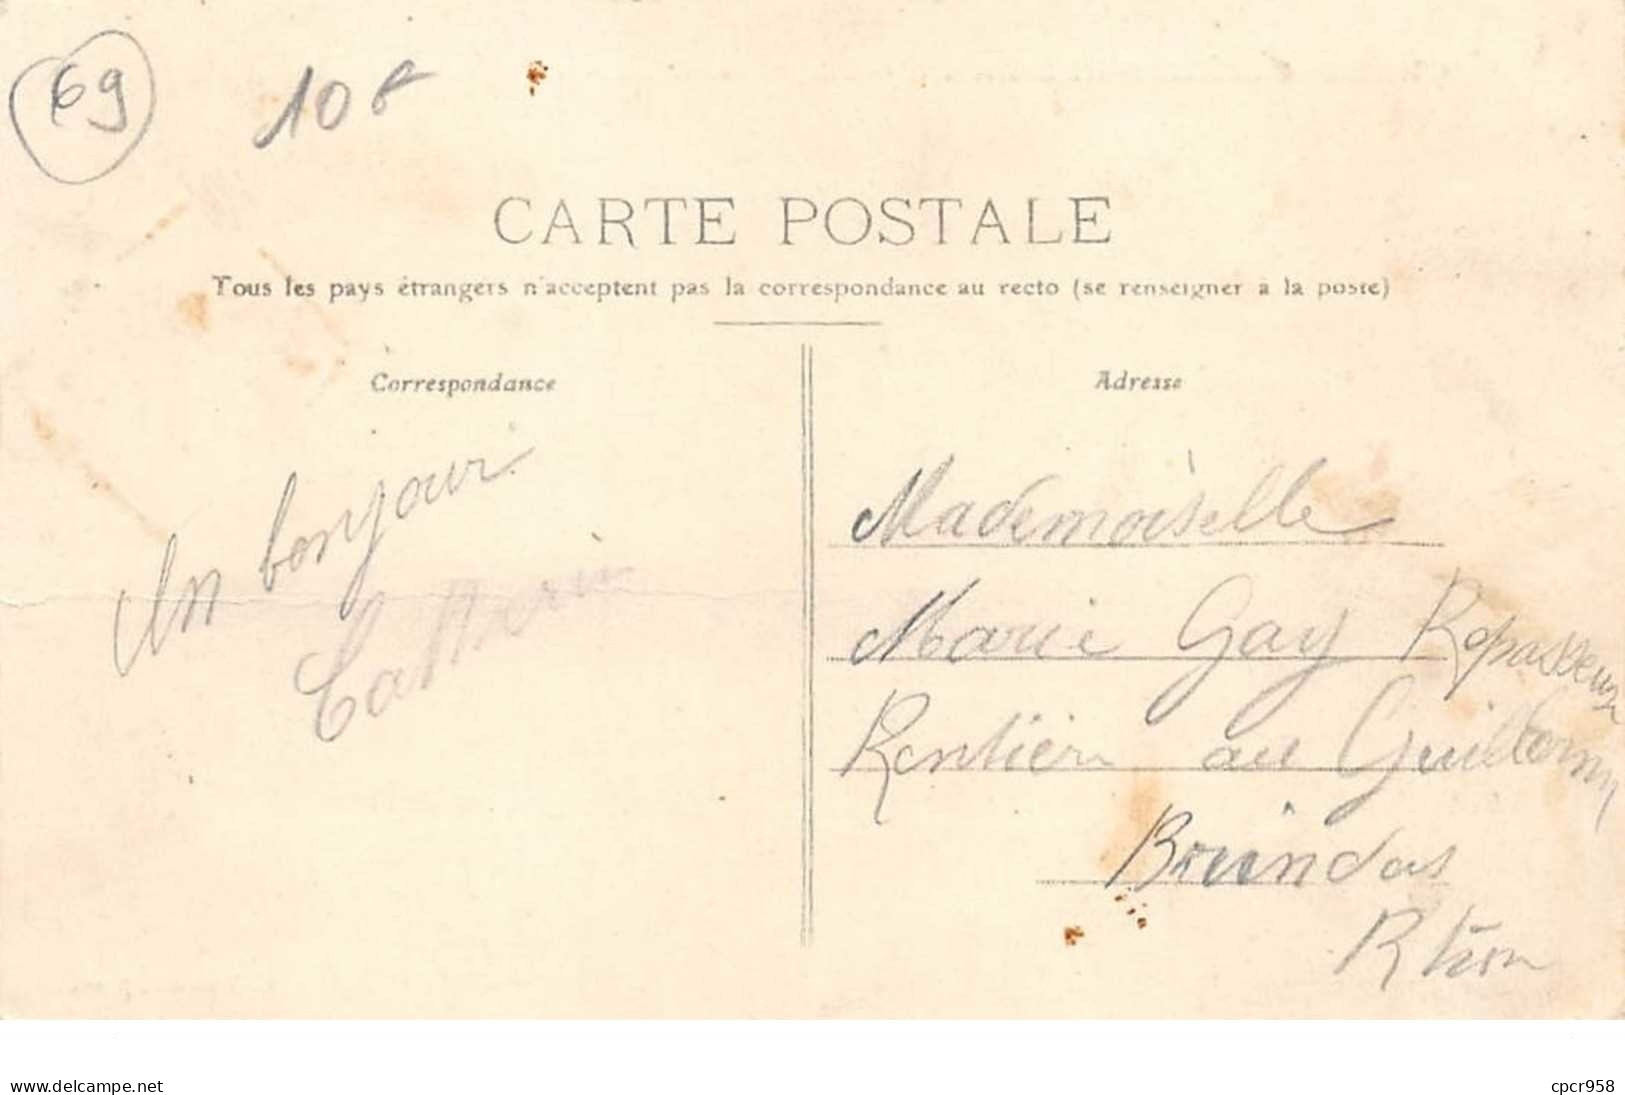 69
10f
CARTE POSTALE
Tous les pays étrangers n'acceptent pas la correspondance au recto (se renseigner à la poste)
Correspondance
Un bonjour
Adresse
Mademoiselle
Marie Gay Repasseuse
Rentière au Guillermy
Brindas
Rhône
www.delcampe.net
cpcr958